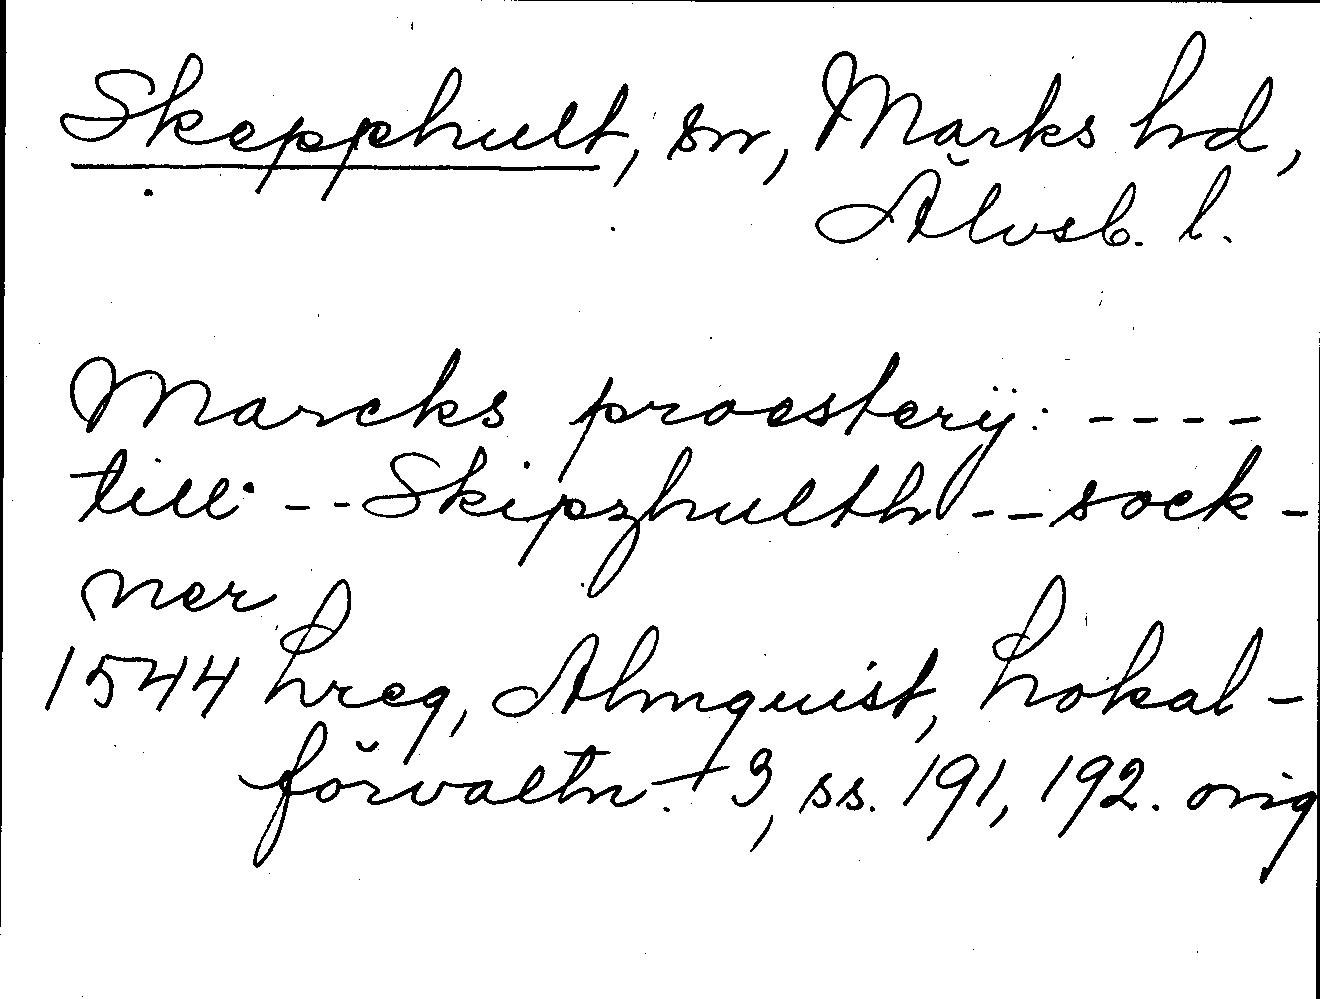 Skepphult, sn, Marks hd,
Älvsb. l.
Marcks proesterij: ----
till --Skipzhulth--sock-
ner
1544 Lreg, Almquist, Lokal-
förvaltn. 3, ss. 191, 192. orig